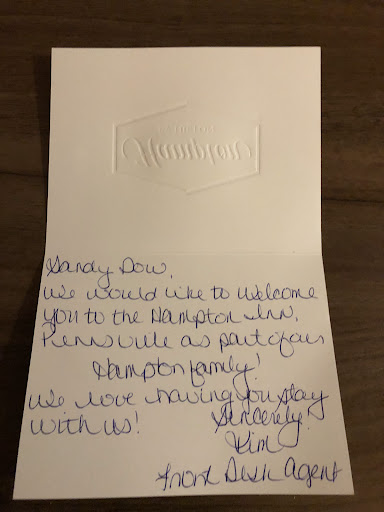 Hampton
Sandy Dow,
We would like to welcome
you to the Hampton Inn,
Pennsville as part of our
Hampton family!
We love having you stay
with us!
Sincerely,
Kim
Front Desk Agent